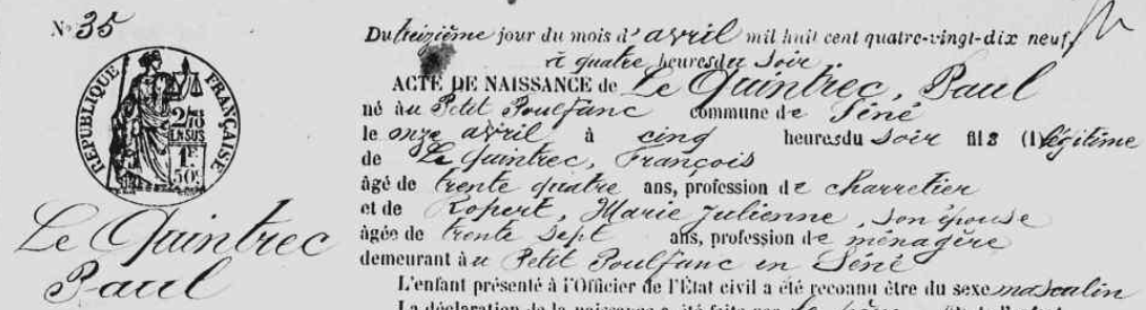 N° 35
RÉPUBLIQUE FRANÇAISE
2/10
EN SUS
1F
50c
Le Quintrec
Paul
Du treizième jour du mois d'avril mil huit cent quatre-vingt-dix neuf,
à quatre heures du soir
ACTE DE NAISSANCE de Le Quintrec, Paul
né au Petit Poulfanc commune de Séné
le onze avril à cinq heures du soir fils (1) légitime
de Le Quintrec, François
âgé de trente quatre ans, profession de charretier
et de Ropert, Marie Julienne, son épouse
âgée de trente sept ans, profession de ménagère
demeurant au Petit Poulfanc en Séné
L'enfant présenté à l'Officier de l'État civil a été reconnu être du sexe masculin
La déclaration de la naissance a été faite par le père